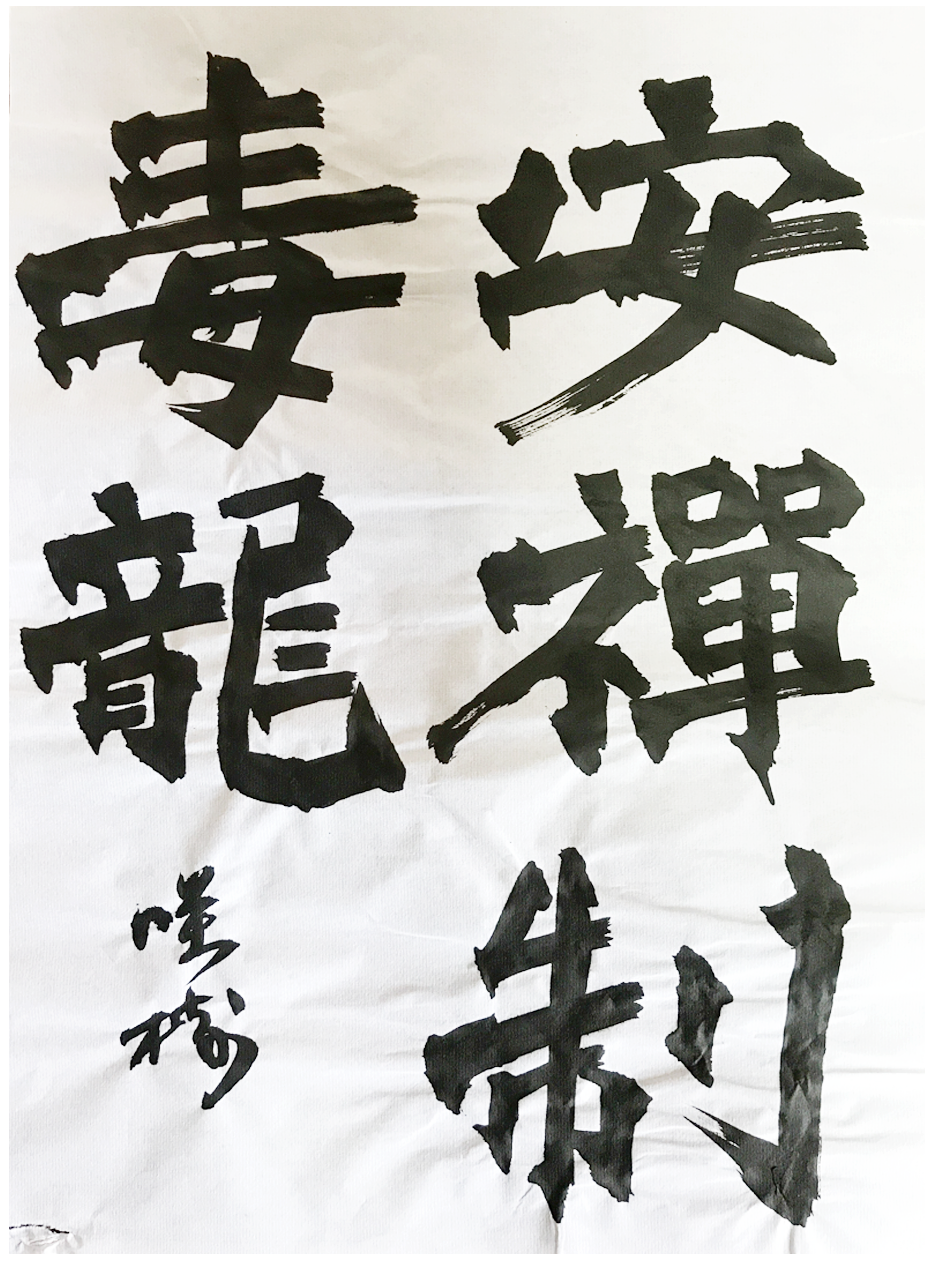 安禪制
毒龍